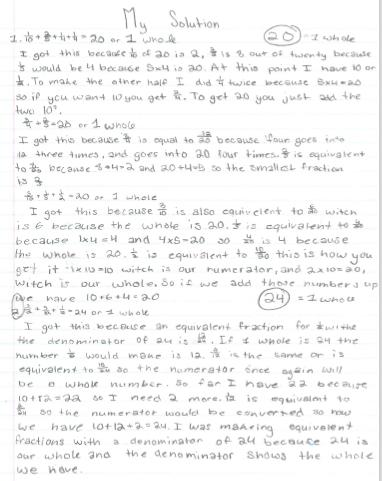 My Solution
1. 1/10 + 2/5 + 1/4 + 1/4 = 20 or 1 whole (20) = 1 whole
I got this because 1/10 of 20 is 2, 2/5 is 8 out of twenty because
1/5 would be 4 because 5x4 is 20. At this point I have 10 or
1/2. To make the other half I did 1/4 twice because 5x4=20
so if you want 10 you get 2/4. To get 20 you just add the
two 10s.
= 20 or 1 whole
I got this because is equal to because four goes into
12 three times, and goes into 20 four times. is equivalent
to because and 20÷4=5 so the smallest fraction
is
= 20 or 1 whole
I got this because 3/10 is also equivelent to 6/20 witch
is 6 because the whole is 20. 1/5 is equivalent to 4/20
because 1x4=4 and 4x5=20 so 4/20 is 4 because
the whole is 20. 1/2 is equivelent to 10/20 this is how you
get it 1x10=10 witch is our numerator, and 2x10=20,
witch is our whole. So if we add those numbers up
we have 10+6+4=20 (24) = 1 whole
= 24 or 1 whole
I got this because an equivalent fraction for with the
denominator of 24 is. If 1 whole is 24 the
number would make is 12. is the same or is
equivalent to so the numerator once again will
be a whole number. So far I have 22 because
10+12=22 so I need 2 more. 1/12 is equivalent to
2/24 so the numerator would be converted so now
we have 10+12+2=24. I was making equivelent
fractions with a denominator of 24 because 24 is
our whole and the denominator shows the whole
we have.